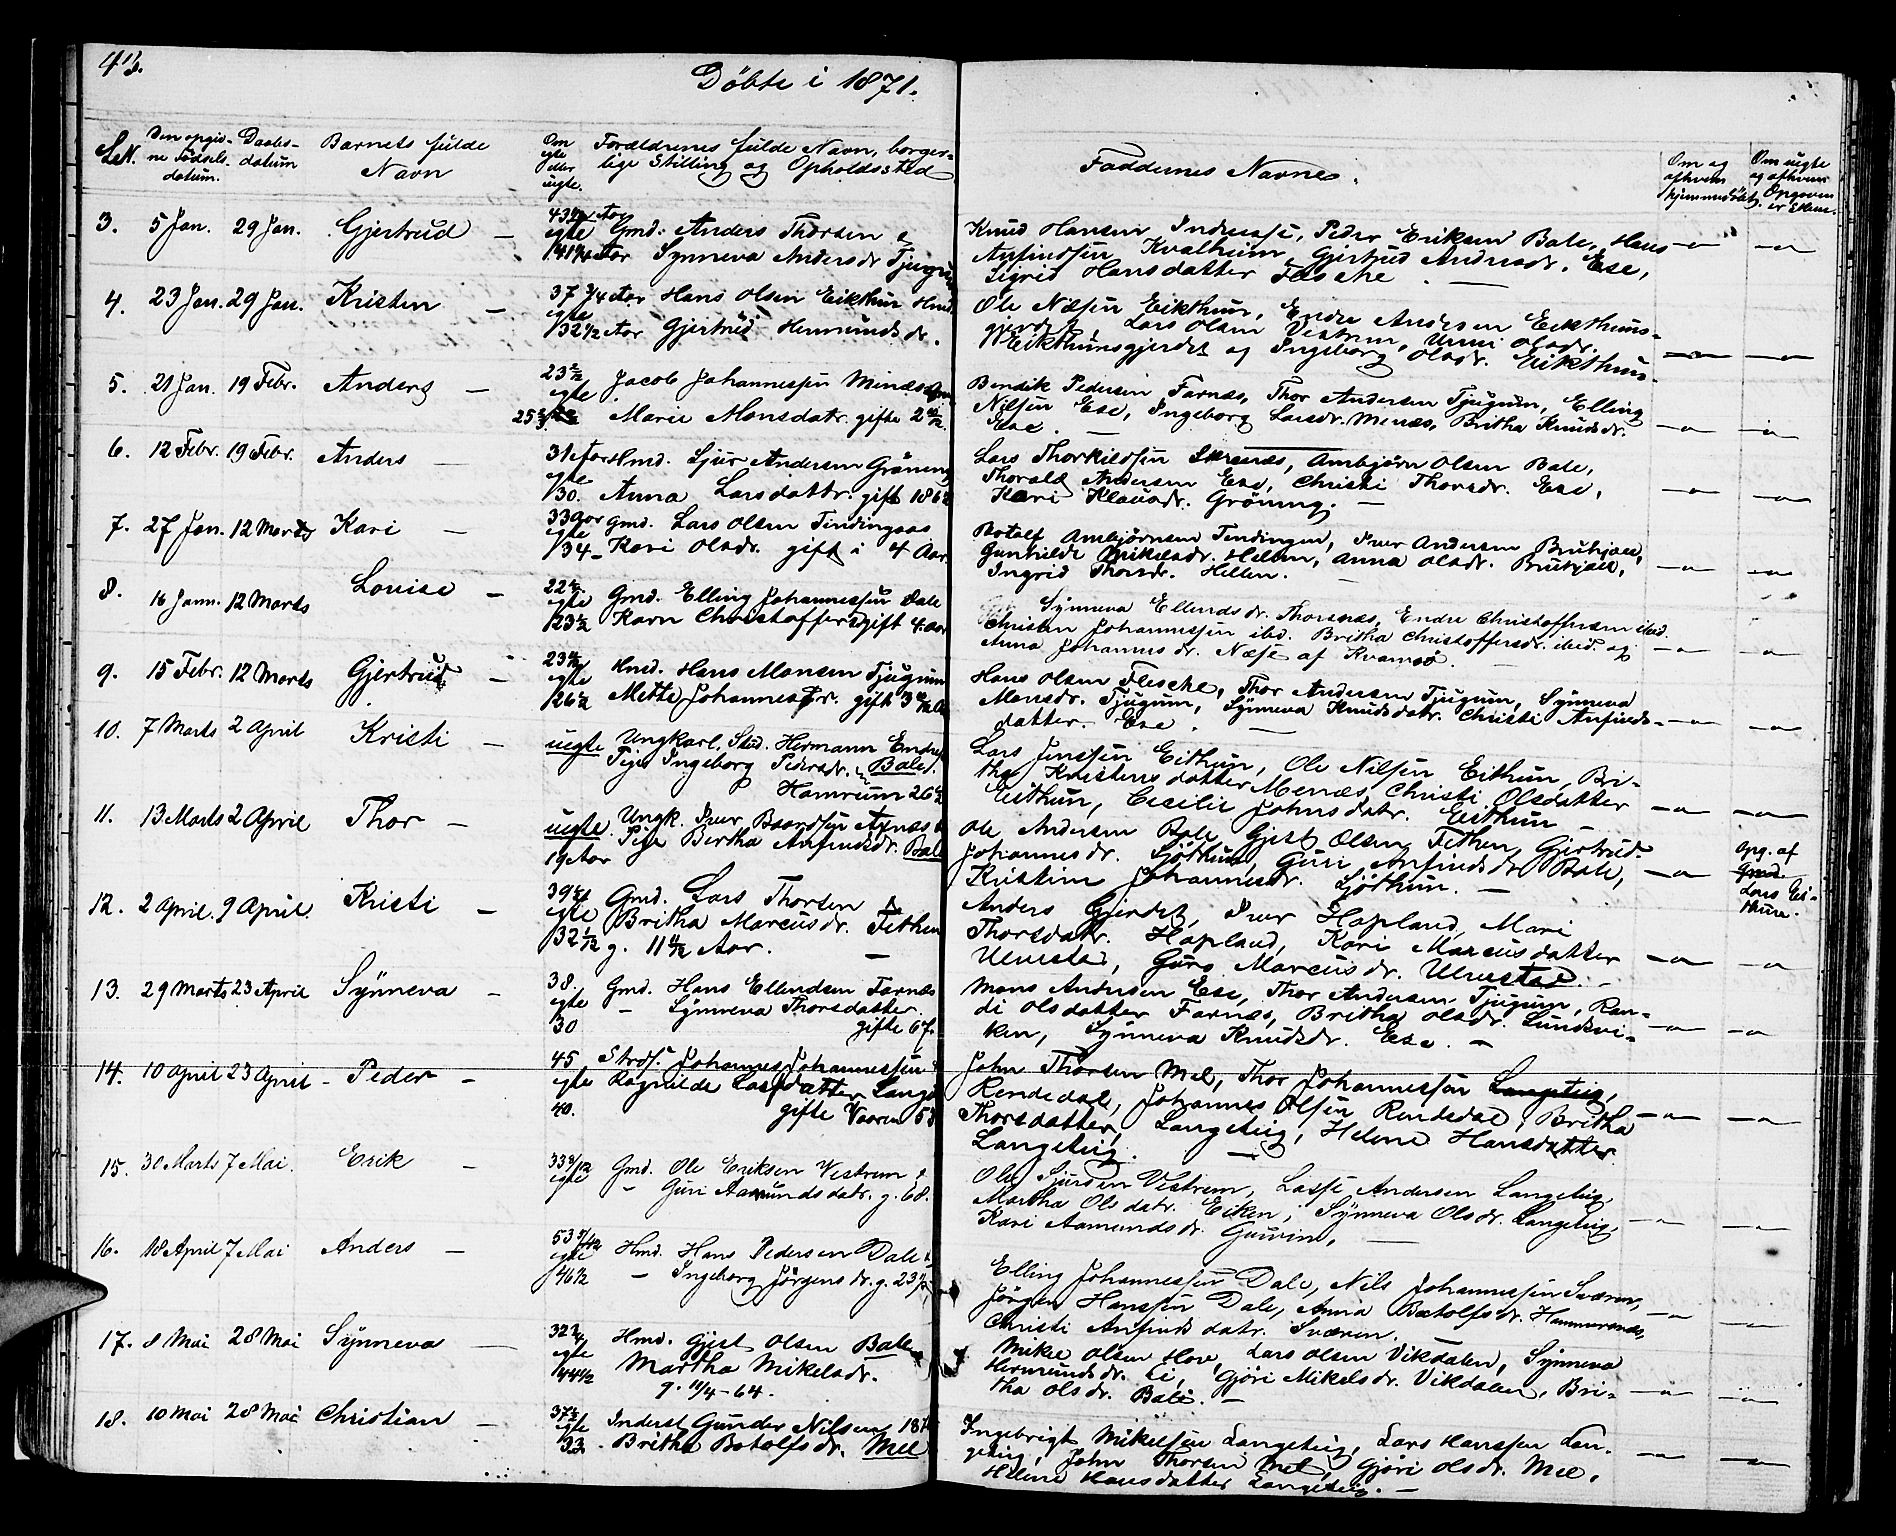 Döbte i 1871.
Den opgid- Daabs- Barnets fulde Om Forældrenes fulde Navn, borger- Faddernes Navne. Om og Om uægte
ne Fødsels- datum Navn egte lige Stilling og Opholdssted afhvem og afhvem
datum. eller uegte. hjemmedøbt Opgaven er
3. 5 Jan. 29 Jan. Gjertrud — egte Gmd. Anders Thorsen &
Synneva Andersdr Tjugum
Knud Hansen Indreese, Peder Eriksen Bale, Hans
Anfindsen Kvalheim, Gjertrud Andersdr. Ese,
Sigrid Hansdatter Flesche. —
4. 23 Jan. 29 Jan. Kristen — 37 3/4 Aar Hans Olsen Eikthun Hmd.
egte
32 1/2 Aar Gjertrud Hermundsdr.
Ole Nilsen Eikthun, Endre Andersen Eikthuns-
gjerdet, Lars Olsen Vestrem, Unni Olsdr.
Eikthunsgjerdet og Ingeborg Olsdr. Eikthun.
5. 21 Jan. 19 Febr. Anders — egte Jacob Johannessen Menæs
Marie Monsdatr. gifte
Bendik Pedersen Farnæs, Thor Andersen Tjugum, Elling
Nilsen Ese, Ingeborg Larsdr. Menæs, Britha Knudsdr.
Ese. —
6. 12 Febr. 19 Febr. Anders — 31 Aar Hmd. Sjur Andersen Gröning
egte
30. Anna Larsdattr. gift
Lars Thorkildsen Ambjørn Olsen Bale,
Thorald Andersen Ese, Christi Thorsdr. Ese,
Kari Klausdr. Gröning. —
7. 27 Jan. 12 Marts Kari — 33 Aar Gmd. Lars Olsen Tendingaas
egte
34 — Kari Olsdr. gift i 4 Aar
Botolf Ambjørnsen Tendingen, Iver Andersen
Gunhilde Mikelsdr. Hellen, Anna Olsdr.
Ingrid Thorsdr. Hellen. —
8. 16 Jann. 12 Marts Louise — egte Gmd. Elling Johannessen Dale
23 1/2 Karn Christoffers gift 4 aar
Synneva Ellendsdr. Thorsnæs, Endre Christoffersen ibid.
Christen Johannessen ibd. Britha Christoffersdr. ibid. og
Anna Johannesdr. Næse af Kvamsö.
9. 15 Febr. 12 Marts Gjertrud — egte Hmd. Hans Monsen Tjugum
26 1/2 Mette Johannesdr. gift
Hans Olsen Flesche, Thor Andersen Tjugum, Synneva
Monsdr. Tjugum, Synneva Knudsdatr. Christi Anfinds-
datter Ese. —
10. 7 Marts 2 April Kristi — uegte Ungkarl, Hermann Endres.
Pige Ingeborg Pedersdr. Bale.
Lars Jensen Eithun, Ole Nilsen Eithun, Bri-
tha Kristensdatter Menæs, Christi Olsdatter
Eithun, Cecilie Johnsdatr. Eithun —
11. 13 Marts 2 April Thor — uegte Ungk. Iver Baardsen
Pige Bertha Anfindsdr. Bale
19 Aar
Ole Andersen Bale, Gjest Olsen Fethen, Gjertrud
Johannesdr. Sjöthun, Guri Anfindsdr. Bale,
Kristine Johannesdr. Sjöthun. —
Opg. af
Gmd.
Lars Ei-
thun.
12. 2 April. 9 April. Kristi — egte Gmd. Lars Thorsen &
Britha Marcusdr. Fethen
g. 11 Aar.
Anders Gjerdet, Iver Hopland, Mari
Thorsdatr. Hopland, Kari Marcusdatter
Ulvestad, Guro Marcusdr. Ulvestad. —
13. 29 Marts 23 April Synneva — 38. Gmd. Hans Ellendsen Farnæs
egte — Synneva Thorsdatter.
30 gifte 67.
Mons Andersen Ese, Thor Andersen Tjugum, Ran-
di Olsdatter Farnæs, Britha Olsdr. Sundsvi-
ken, Synneva Knudsdr. Ese. —
14. 10 April 23 April — Peder — 45 Strds. Johannes Johannessen
egte Ragnilde Larsdatter Lange
40. gifte Vaaren 58
John Thorsen Mel, Thor Johannessen Langeteig,
Rendedale, Johannes Olsen Rendedal, Britha
Thorsdatter, Langeteig, Helene Hansdatter
Langeteig. —
15. 30 Marts 7 Mai. Erik — egte Gmd. Ole Eriksen Vestrem &
— Guri Aamundsdatr. g. 68.
Ole Sjursen Vestrem, Lasse Andersen Langeteig,
Martha Olsdatr. Eiken, Synneva Olsdr. Langeteig,
Kari Aamundsdr.
16. 18 April 7 Mai Anders — egte Hmd. Hans Pedersen Dale &
46 1/2 — Ingeborg Jörgensdr. g. 23
Elling Johannessen Dale, Nils Johannessen Sværen,
Jörgen Hanssen Dale, Anna Botolfsdr. Hammersnæs,
Christi Anfindsdatr. Sværen.
17. 8 Mai 28 Mai Synneva — egte Hmd. Gjest Olsen Bale
44 1/2 Martha Mikelsdr.
g. 11/4 - 64.
Mikel Olsen Hove, Lars Olsen Vikdalen, Synneva
Hermundsdr. Li, Gjöri Mikelsdr. Vikdalen, Bri-
tha Olsdr. Bale. —
18. 10 Mai 28 Mai Christian — egte Inderst Gunder Nilsen
33 Britha Botolfsdr. Mel
Ingebrigt Mikelsen Langeteig, Lars Hanssen Lan-
geteig, John Thorsen Mel, Gjöri Olsdr. Mel,
Helene Hansdatter Langeteig. —